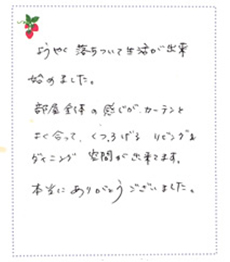 ようやく落ちついて生活が出来
始めました。
部屋全体の感じが、カーテンと
よく合って、くつろげる リビング&
ダイニング 空間が出来てます。
本当にありがとうございました。